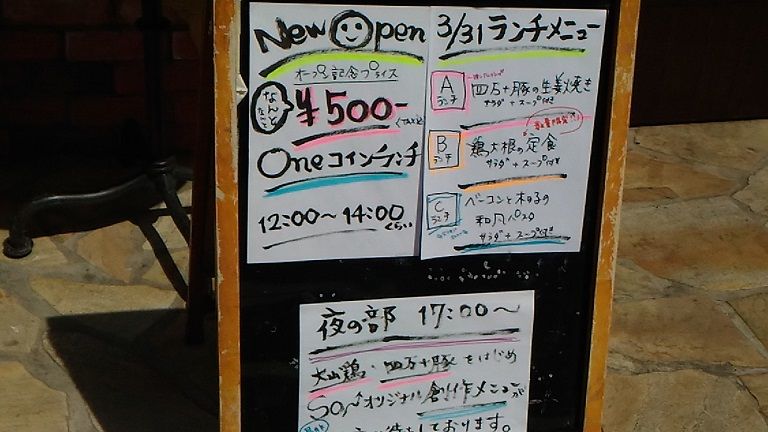 New Open
オープン記念プライス
なんと
¥500-
Oneコインランチ
12:00〜14:00
くらい
3/31 ランチメニュー
A
ランチ
四万十豚の生姜焼き
サラダ+スープ付き
B
ランチ
鶏大根の定食
サラダ+スープ付き
C
ランチ
ベーコンときのこの
和風パスタ
サラダ+スープ付き
夜の部 17:00〜
大山鶏、四万十豚をはじめ
オリジナル創作メニューが
しております。